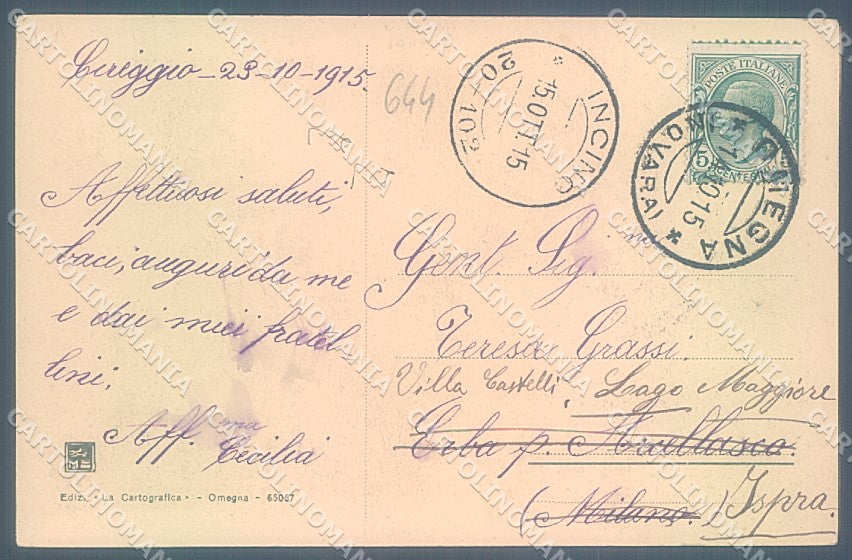 Cireggio - 23-10-1915.
644
INCINO
* 15.OTT.15
20-10 S
POSTE ITALIANE
5 CENTESIMI 5
OMEGNA
* (NOVARA) *
10 15
Affettuosi saluti,
baci, auguri da me
e dai miei fratel
lini.
Aff.ma
Cecilia
Gent. Sig.na
Teresa Grassi.
Villa Castelli, Lago Maggiore
Erba p.
(Milano.) Ispra.
Ediz. "La Cartografica" - Omegna - 65067
CARTOLINOMANIA